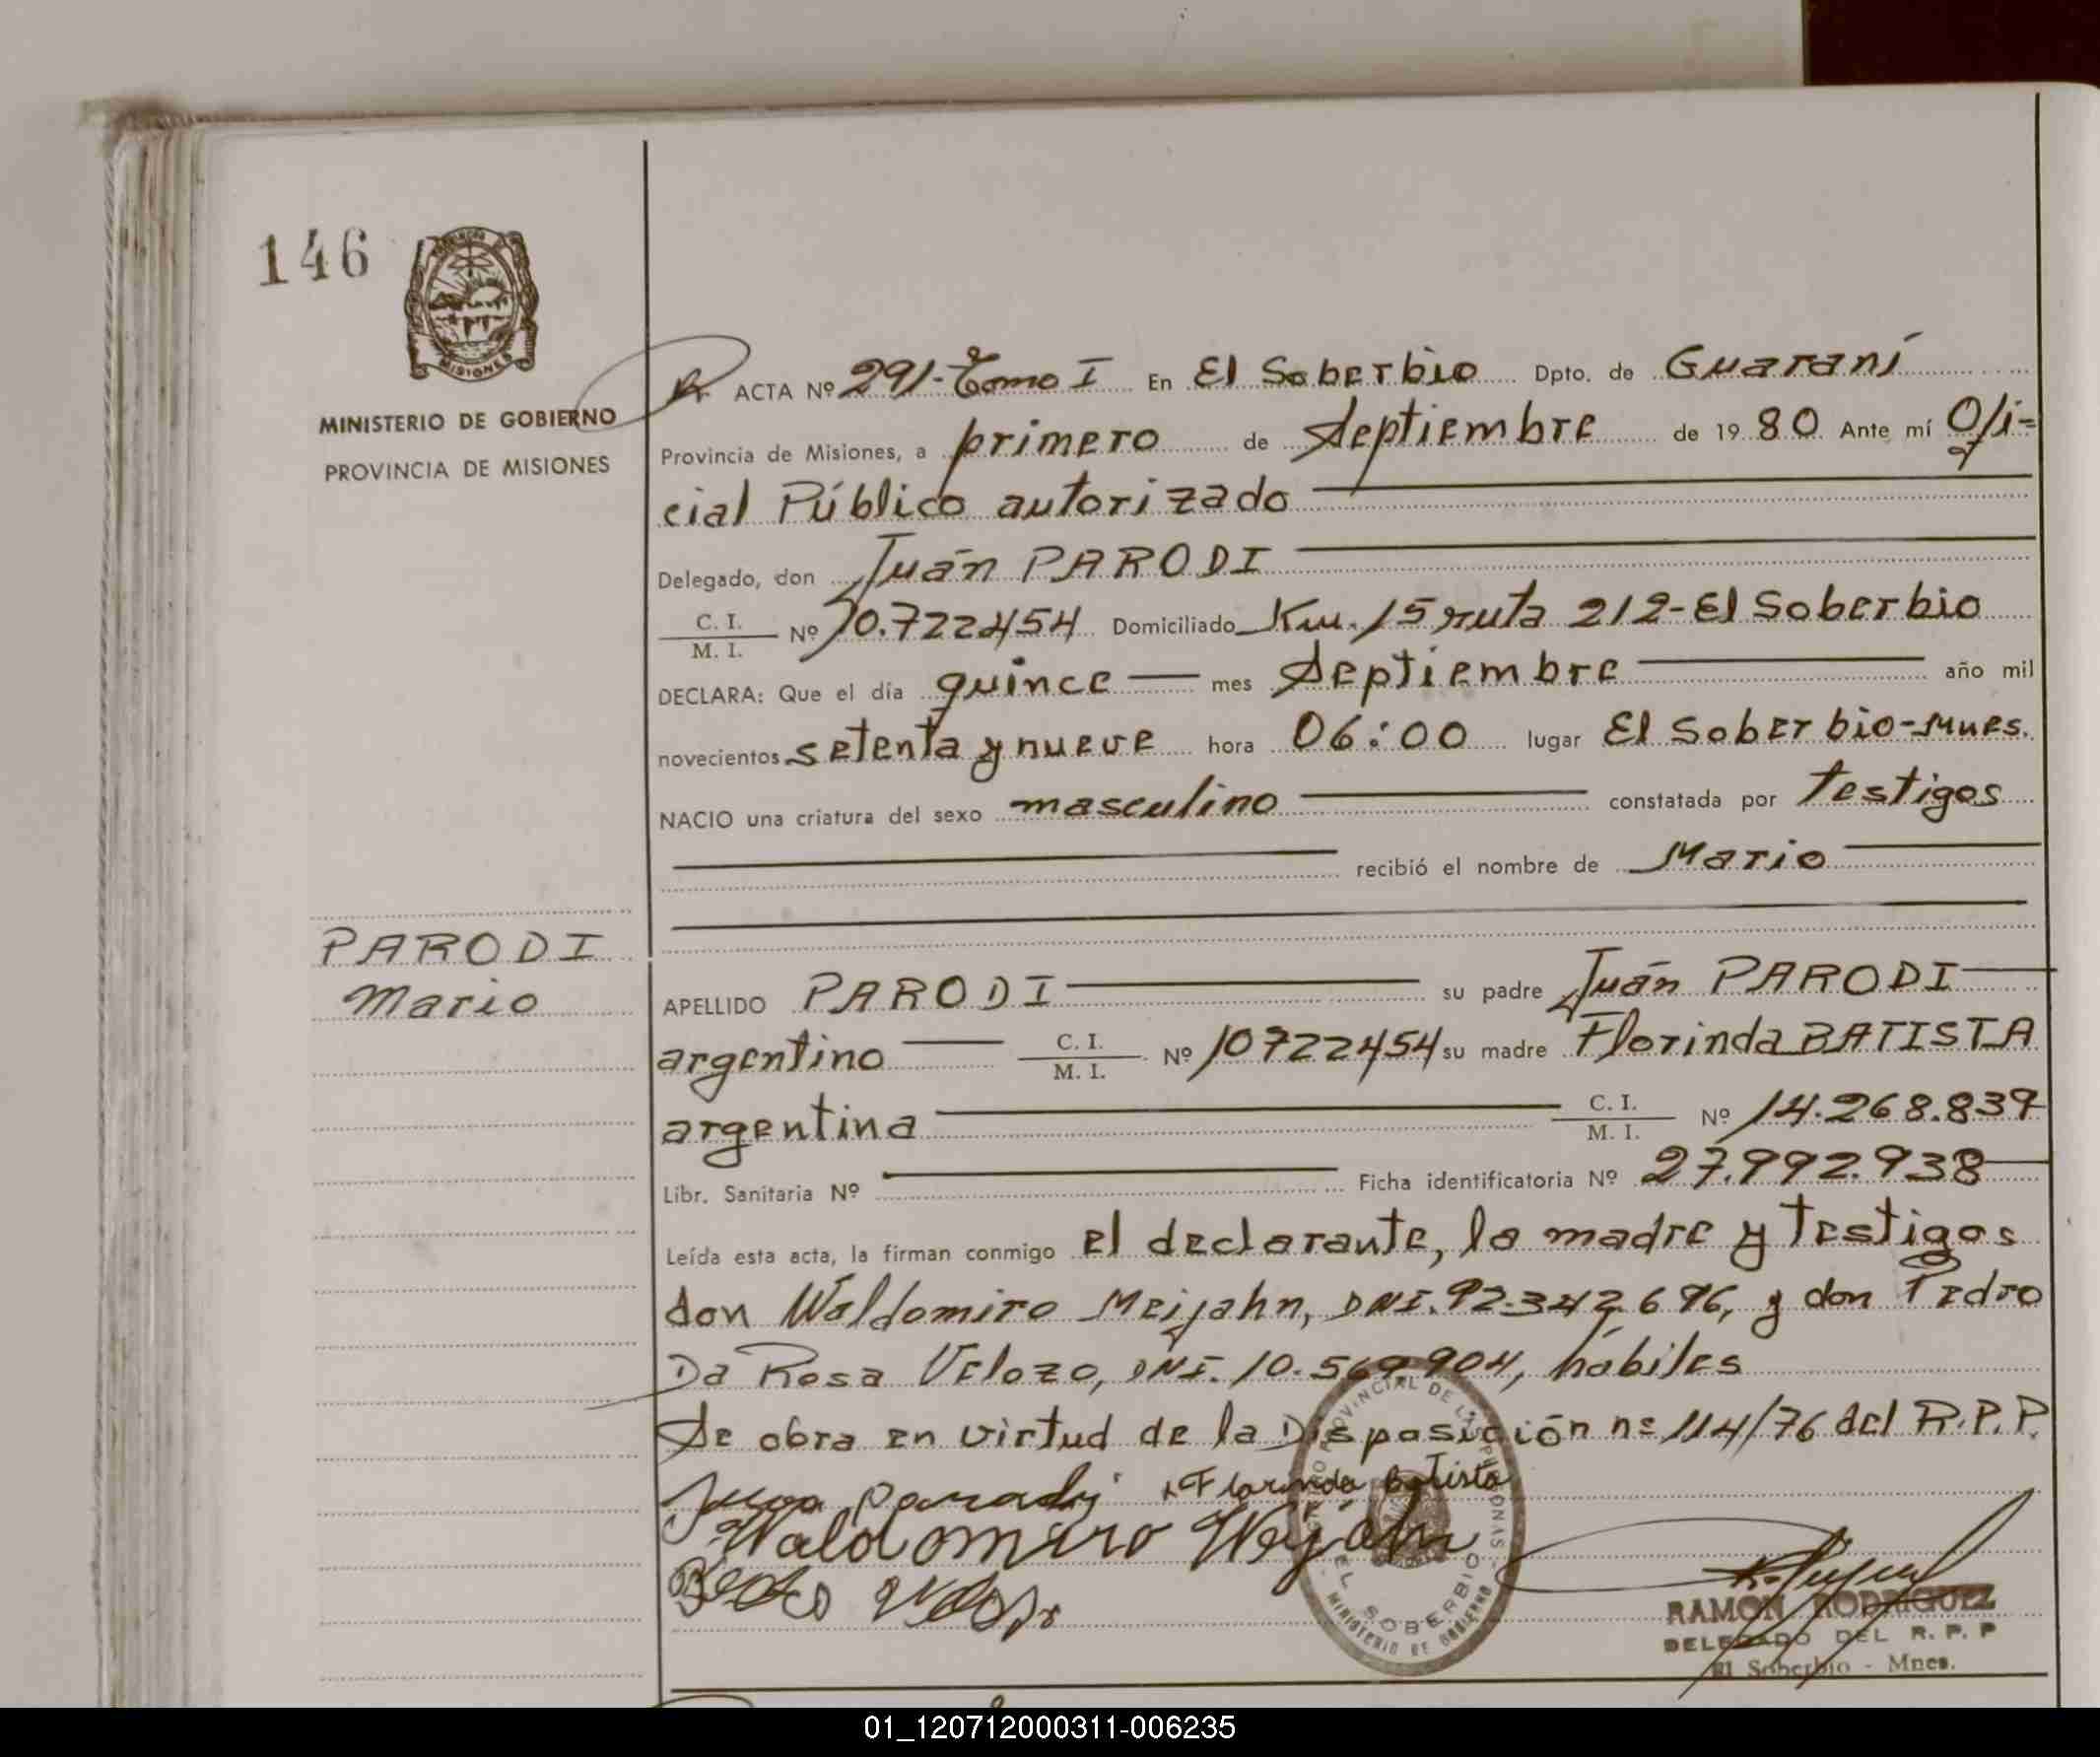 146
MISIONES
MINISTERIO DE GOBIERNO
PROVINCIA DE MISIONES
ACTA Nº 291-Tomo I En El Soberbio Dpto. de Guaraní
Provincia de Misiones, a primero de Septiembre de 19 80 Ante mí Ofi=
cial Público autorizado
Delegado, don Juán PARODI
C. I.
M. I. Nº 10.722454 Domiciliado Km. 15 ruta 212-El Soberbio
DECLARA: Que el día quince mes Septiembre año mil
novecientos setenta y nueve hora 06:00 lugar El Soberbio-Mnes.
NACIO una criatura del sexo masculino constatada por testigos
recibió el nombre de Mario
PARODI
Mario
APELLIDO PARODI su padre Juán PARODI
argentino C. I. M. I. Nº 10722454 su madre Florinda BATISTA
argentina C. I. M. I. Nº 14.268.839
Libr. Sanitaria Nº Ficha identificatoria Nº 27.992.938
Leída esta acta, la firman conmigo el declarante, la madre y testigos
don Waldomiro Meijahn, DNI. 92.342.696, y don Pedro
Da Rosa Velozo, DNI. 10.569904, hábiles
Se obra en virtud de la Disposición nº 114/76 del R.P.P.
Juan Parodi Florinda Batista
Waldomiro Mejahn
EL SOBERBIO
MINISTERIO DE GOBIERNO
RAMON RODRIGUEZ
DELEGADO DEL R. P. P
El Soberbio - Mnes.
01_120712000311-006235